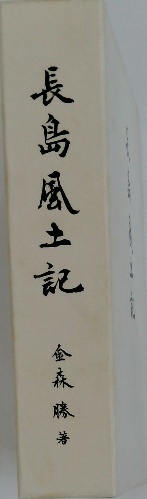 長島風土記
金森勝著